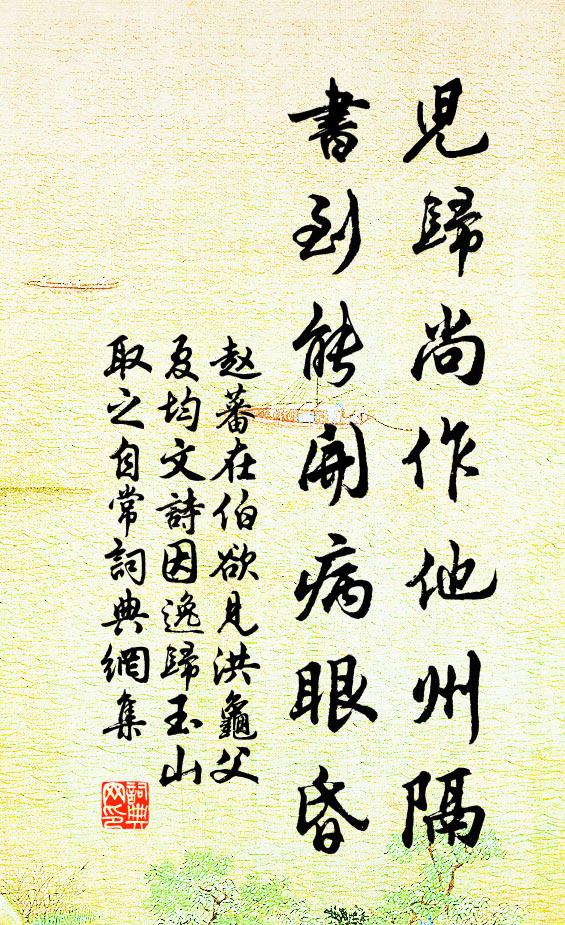 兒歸尚作他州隔
書到能開病眼昏
赵蕃在伯欲見洪龜父
夏均文詩因逸歸玉山
取之自常詞典網集
詞典网印